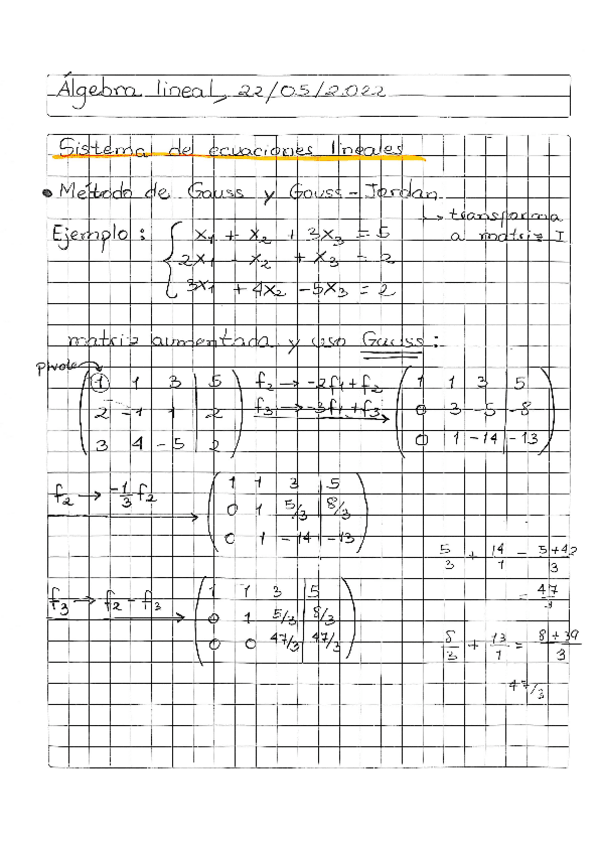 Álgebra lineal, 22/05/2022
Sistema de ecuaciones lineales
• Método de Gauss y Gauss-Jordan
↳ transforma a matriz I
Ejemplo: { x₁ + x₂ + 3x₃ = 5
2x₁ - x₂ + x₃ = 2
3x₁ + 4x₂ - 5x₃ = 2
matriz aumentada y uso Gauss:
pivote
( 1 1 3 | 5 ) f₂ → -2f₁+f₂ ( 1 1 3 | 5 )
( 2 -1 1 | 2 ) f₃ → -3f₁+f₃ ( 0 3 -5 | -8 )
( 3 4 -5 | 2 ) ( 0 1 -14 | -13 )
f₂ → -1/3 f₂
( 1 1 3 | 5 )
( 0 1 5/3 | 8/3 )
( 0 1 -14 | -13 )
5/3 + 14/1 = 5+42/3
= 47/3
f₃ → f₂ - f₃
( 1 1 3 | 5 )
( 0 1 5/3 | 8/3 )
( 0 0 47/3 | 47/3 )
8/3 + 13/1 = 8+39/3
47/3